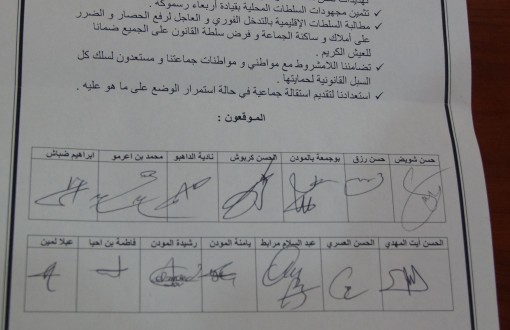 ✓ تثمين مجهودات السلطات المحلية بقيادة أربعاء رسموكة .
✓ مطالبة السلطات الإقليمية بالتدخل الفوري و العاجل لرفع الحصار و الضرر
على أملاك و ساكنة الجماعة و فرض سلطة القانون على الجميع ضمانا
للعيش الكريم .
✓ تضامننا اللامشروط مع مواطني و مواطنات جماعتنا و مستعدون لسلك كل
السبل القانونية لحمايتها .
✓ استعدادنا لتقديم استقالة جماعية في حالة استمرار الوضع على ما هو عليه .
الموقعون :
حسن شويض حسن رزق بوجمعة بالمودن الحسن كربوش نادية الداهبو محمد بن اعرمو ابراهيم ضباش
الحسن أيت المهدي الحسن العصري عبد السلام مرابط يامنة المودن رشيدة المودن فاطمة بن احيا عبلا لمين